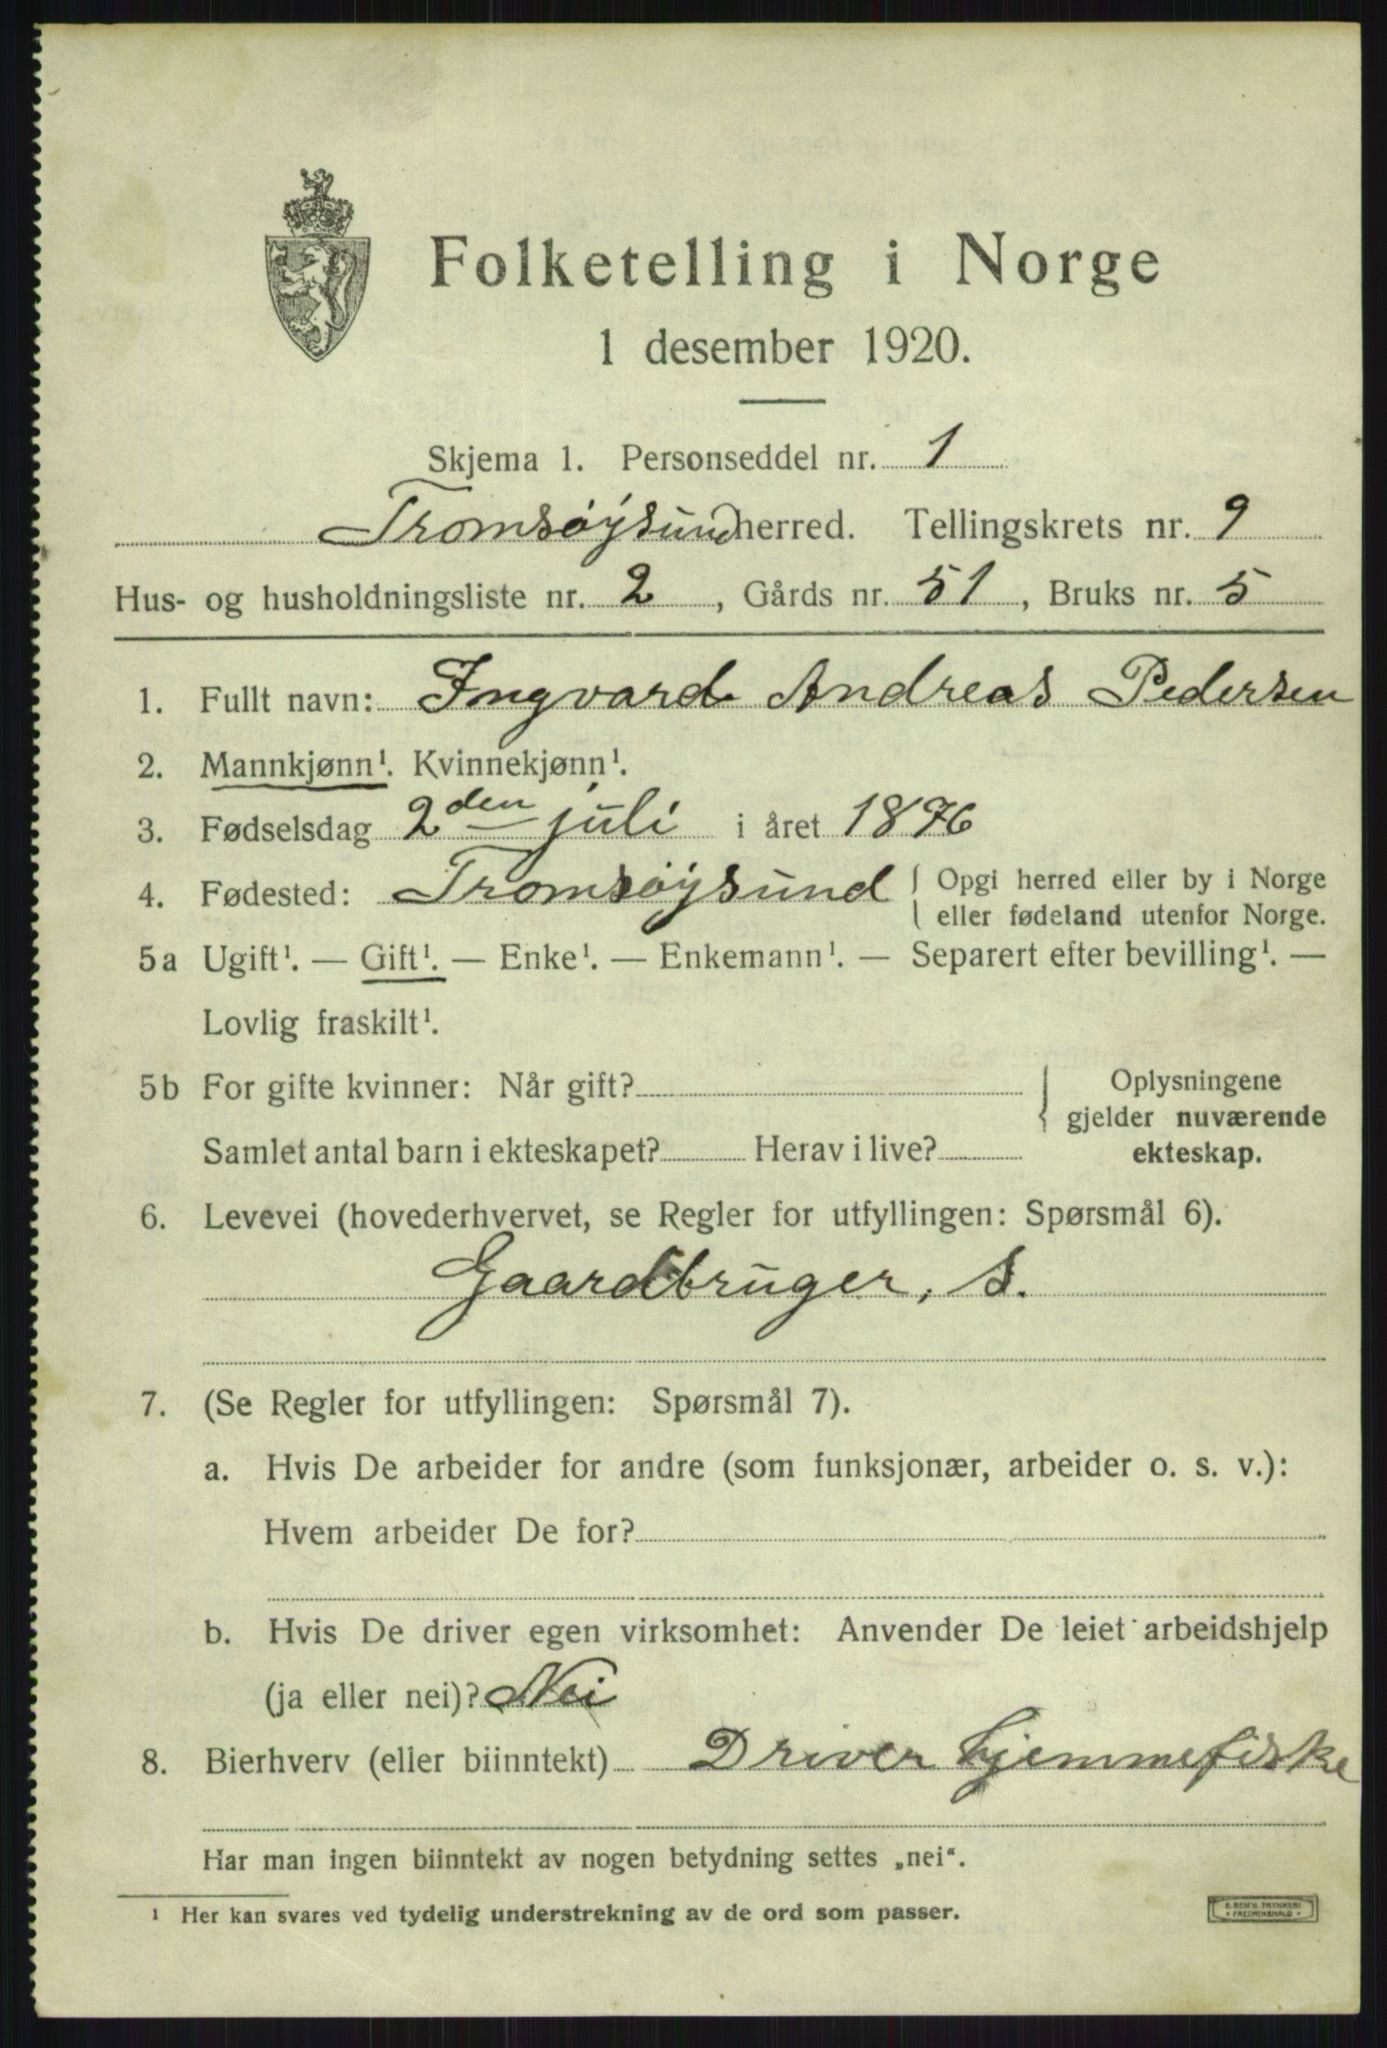 Folketelling i Norge
1 desember 1920.
Skjema 1. Personseddel nr. 1
Tromsøysund herred. Tellingskrets nr. 9
Hus- og husholdningsliste nr. 2, Gårds nr. 51, Bruks nr. 5
1. Fullt navn: Ingvard Andreas Pedersen
2. Mannkjønn¹. Kvinnekjønn¹.
3. Fødselsdag 2den juli i året 1876
4. Fødested: Tromsøysund { Opgi herred eller by i Norge
eller fødeland utenfor Norge.
5a Ugift¹. — Gift¹. — Enke¹. — Enkemann¹. — Separert efter bevilling¹. —
Lovlig fraskilt¹.
5b For gifte kvinner: Når gift? } Oplysningene
gjelder nuværende
Samlet antal barn i ekteskapet? Herav i live? ekteskap.
6. Levevei (hovederhvervet, se Regler for utfyllingen: Spørsmål 6).
Gaardbruger, s.
7. (Se Regler for utfyllingen: Spørsmål 7).
a. Hvis De arbeider for andre (som funksjonær, arbeider o. s. v.):
Hvem arbeider De for?
b. Hvis De driver egen virksomhet: Anvender De leiet arbeidshjelp
(ja eller nei)? Nei
8. Bierhverv (eller biinntekt) Driver hjemmefiske
Har man ingen biinntekt av nogen betydning settes „nei“.
¹ Her kan svares ved tydelig understrekning av de ord som passer.
E. SEM'S TRYKKERI
• FREDRIKSHALD •